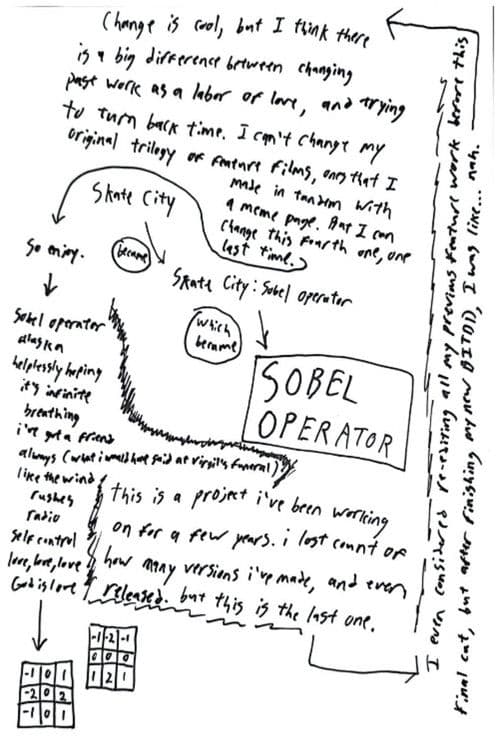 Change is cool, but I think there
is a big difference between changing
past work as a labor of love, and trying
to turn back time. I can't change my
original trilogy of feature films, ones that I
made in tandem with
a meme page. But I can
change this fourth one, one
last time.
Skate City
So enjoy.
became
Skate City: Sobel operator
which
became
SOBEL
OPERATOR
Sobel operator
alaska
helplessly hoping
it's infinite
breathing
i've got a friend
always (what i would have said at virgil's funeral)
like the wind
rushes
radio
self control
love, love, love
God is love
this is a project i've been working
on for a few years. i lost count of
how many versions i've made, and even
released. but this is the last one.
I even considered re-editing all my previous feature work before this
final cut, but after finishing my new (DITOD), I was like... nah.
-1 0 1
-2 0 2
-1 0 1
-1 -2 -1
0 0 0
1 2 1